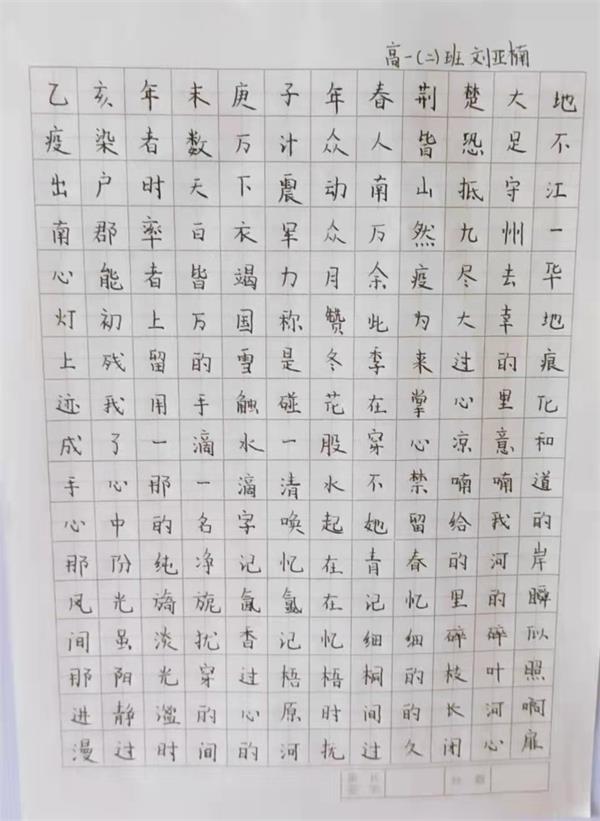 高一(二)班 刘亚楠
乙亥年末庚子年春荆楚大地
疫染者数万计众人皆恐足不
出户时天下震动南山抵守江
南郡率白衣军众万然九州一
心能者皆竭力月余疫尽去华
灯初上万国称赞此为大幸地
上残留的雪是冬季来过的痕
迹我用手触碰花在掌心里化
成了一滴水一股穿心凉意和
手心那一滴清水不禁喃喃道
心中的名字唤起她留给我的
那份纯净记忆在青春的河岸
风光旖旎氤氲在记忆里的瞬
间虽淡犹香记忆细细碎碎似
那阳光穿过梧梧桐的枝叶照
进静滥的心原时间的长河啊
漫过时间的河抚过久闭心扉